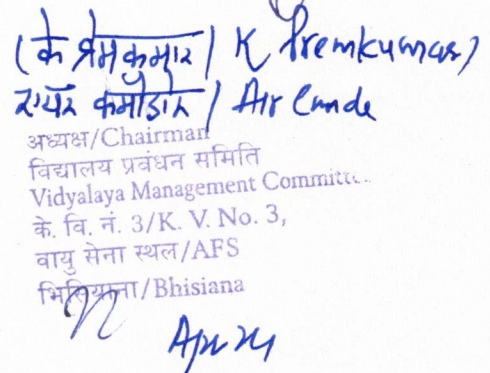 (के प्रेमकुमार / K Premkumar)
एयर कमोडोर / Air Cmde
अध्यक्ष/Chairman
विद्यालय प्रबंधन समिति
Vidyalaya Management Committ
के. वि. नं. 3/K. V. No. 3,
वायु सेना स्थल/AFS
भिसियाना/Bhisiana
Apr 24